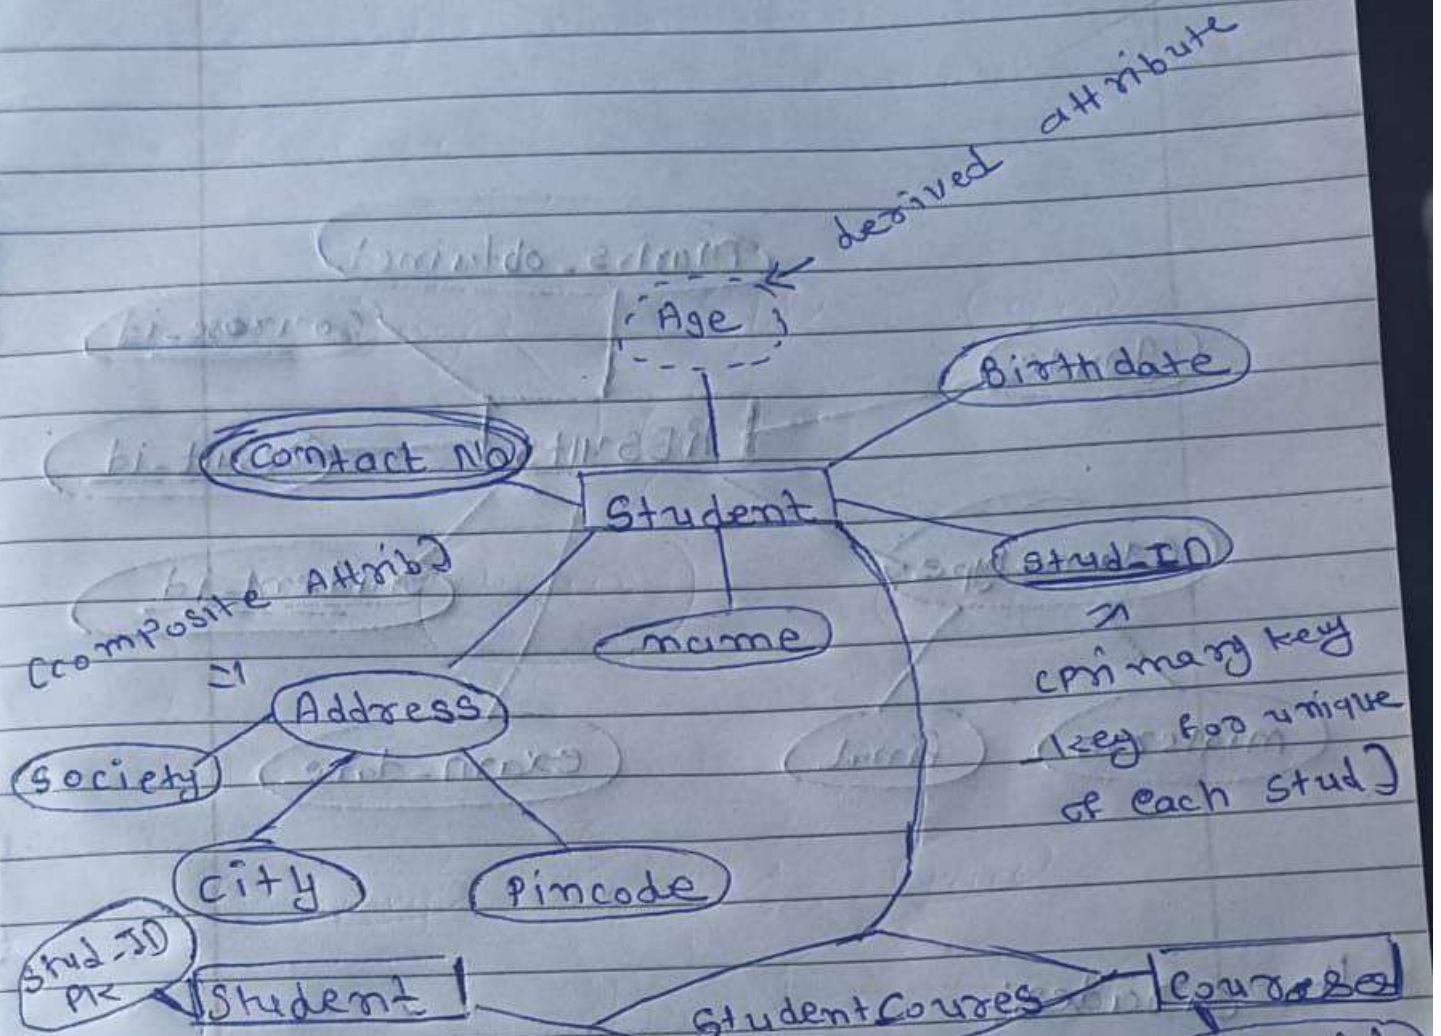 derived attribute
Age
Birthdate
Contact No
Student
Stud_ID
(composite Attrib)
name
(primary key
key for unique
of each stud)
Address
society
city
Pincode
Stud_ID
PK
Student
StudentCoures
Courses